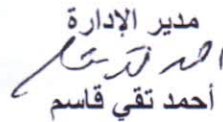 مدير الإدارة
أحمد تقي قاسم